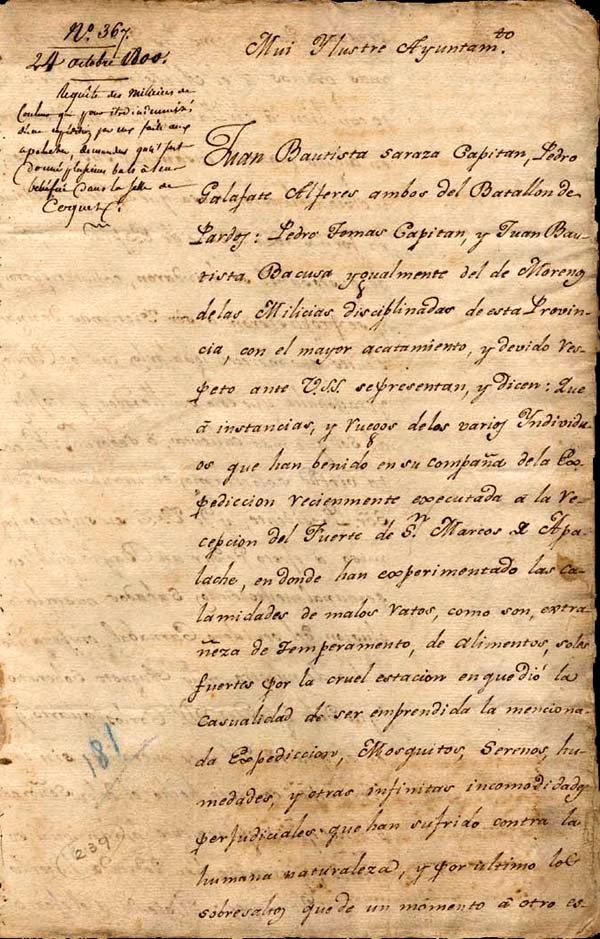 N.º 367.
24 octubre 1800.
Requête des miliciens de
Couleur qui pour être indemnisés
d'une expédition par eux faite aux
apalaches demandent qu'il soit
donné plusieurs bals à leur
bénéfice dans la salle de
Coquet.
Mui Ylustre Ayuntam.to
Juan Bautista Saraza Capitan, Pedro
Galafate Alferes ambos del Batallon de
Pardos: Pedro Tomas Capitan, y Juan Bau-
tista Bacusa ygualmente del de Morenos
delas Milicias disciplinadas de esta Provin-
cia, con el mayor acatamiento, y devido res-
peto ante V.SS. se presentan, y dicen: Que
â instancias, y ruegos delos varios Yndividu-
os que han benido en su compaña dela Ex-
pediccion recienmente executada â la re-
cepcion del Fuerte de S.n Marcos de Apa-
lache, en donde han experimentado las ca-
lamidades de malos ratos, como son, extra-
ñeza de temperamento, de alimentos, soles
fuertes por la cruel estacion en que diô la
casualidad de ser emprendida la menciona-
da Expediccion, Mosquitos, Serenos, hu-
medades, y otras infinitas incomodidades
perjudiciales que han sufrido contra la
humana naturaleza, y por ultimo los
sobresaltos que de un momento â otro es
181
(239)